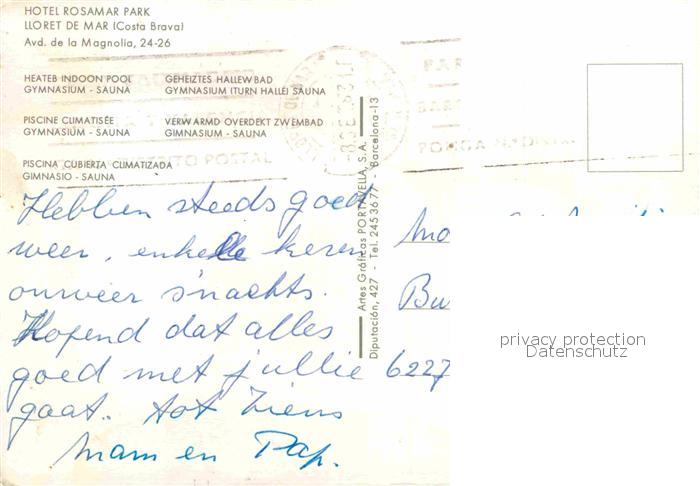 HOTEL ROSAMAR PARK
LLORET DE MAR (Costa Brava)
Avd. de la Magnolia, 24-26
HEATEB INDOON POOL
GYMNASIUM - SAUNA
GEHEIZTES HALLEWBAD
GYMNASIUM (TURN HALLE) SAUNA
PISCINE CLIMATISÉE
GYMNASIUM - SAUNA
VERWARMD OVERDEKT ZWEMBAD
GIMNASIUM - SAUNA
PISCINA CUBIERTA CLIMATIZADA
GIMNASIO - SAUNA
POSTAL
Artes Gráficas PORTAVELLA, S.A.
Diputación, 427 - Tel. 245 36 77 - Barcelona-13
Hebben steeds goed
weer, enkele keren
onweer s'nachts.
Hopend dat alles
goed met jullie
gaat. tot Ziens
Mam en Pap.
Bu
6227
privacy protection
Datenschutz